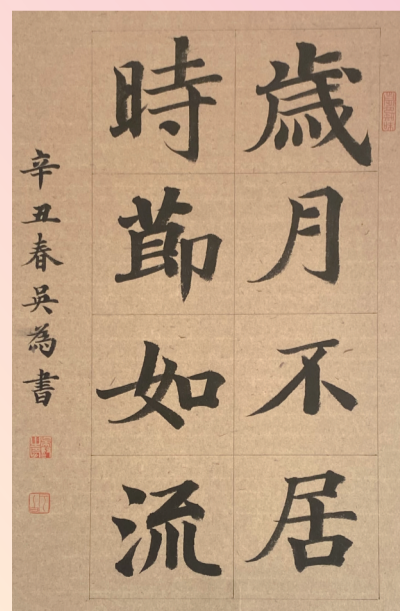 歲月不居
時節如流
辛丑春吳為書